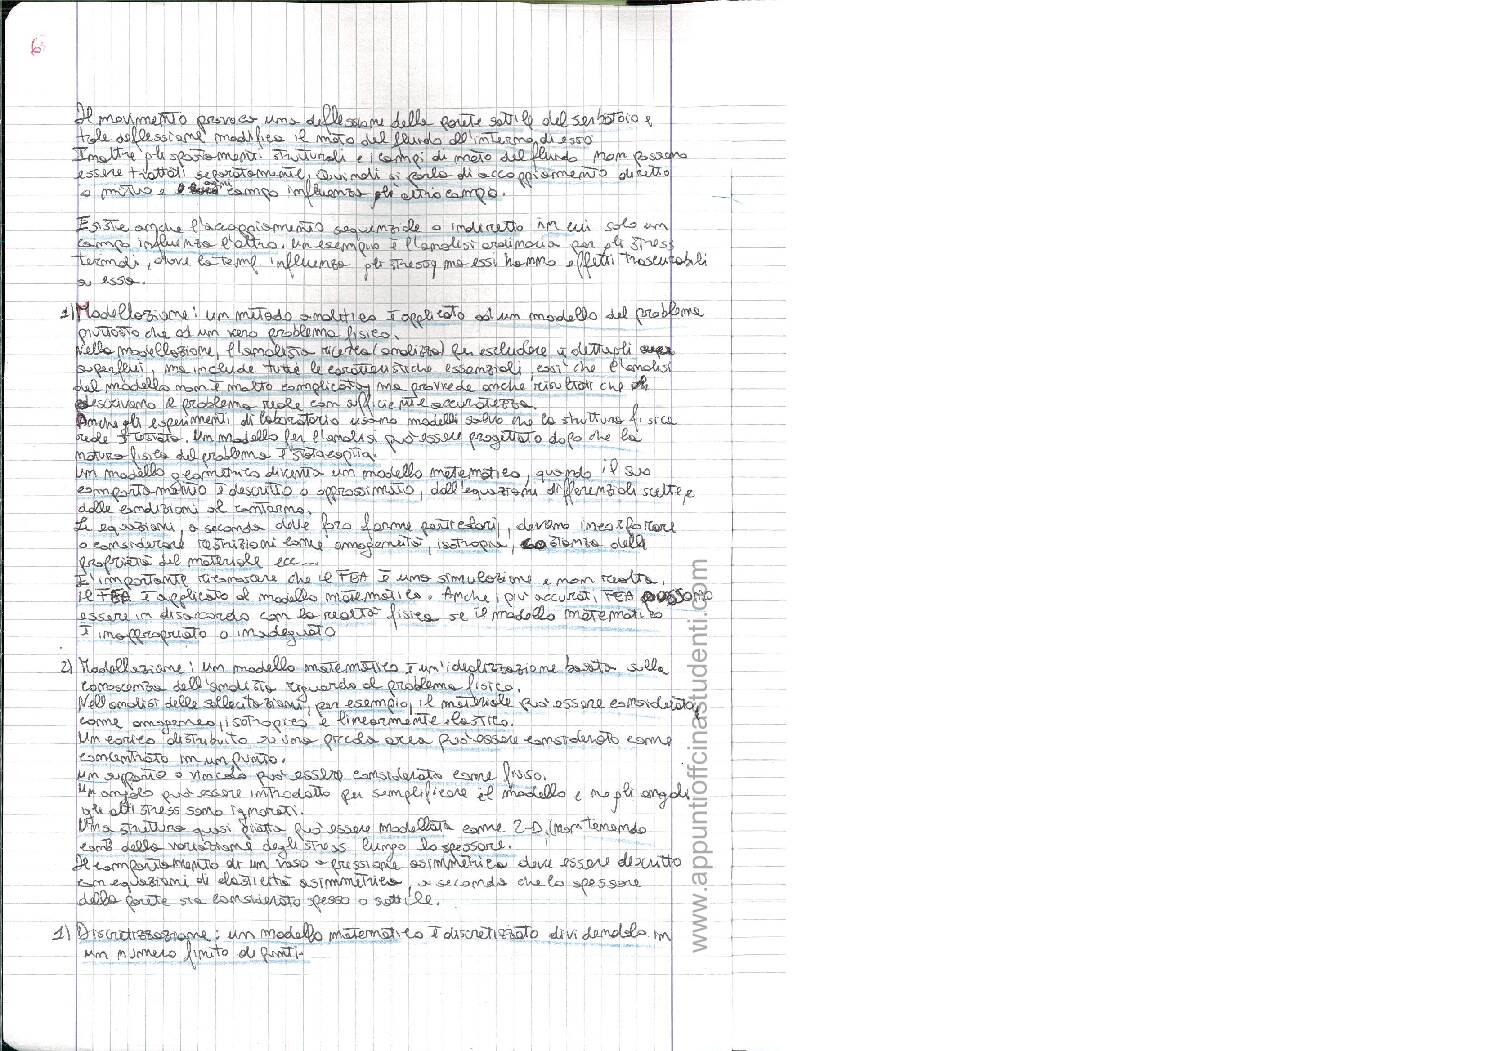 6
Il movimento provoca una deflessione della parete sottile del serbatoio e
tale deflessione modifica il moto del fluido all'interno di esso
Inoltre gli spostamenti strutturali e i campi di moto del fluido non possono
essere trattati separatamente, Quindi si parla di accoppiamento diretto
o mutuo e campo influenza gli altro campo.
Esiste anche l'accoppiamento sequenziale o indiretto in cui solo un
campo influenza l'altro. Un esempio è l'analisi ordinaria per gli stress
termali, dove la temp influenza gli stress, ma essi hanno effetti trascurabili
a essa.
1) Modellazione: un metodo analitico è applicato ad un modello del problema
piuttosto che ad un vero problema fisico.
Nella modellazione, l'analista ricerca (analizza) per escludere i dettagli
superflui, ma include tutte le caratteristiche essenziali, così che l'analisi
del modello non è molto complicata, ma provvede anche risultati che
descrivono il problema reale con sufficiente accuratezza.
Anche gli esperimenti di laboratorio usano modelli salvo che la struttura fisica
reale è testata. Un modello per l'analisi può essere progettato dopo che la
natura fisica del problema è stata capita.
Un modello geometrico diventa un modello matematico, quando il suo
comportamento è descritto o approssimato, dall'equazioni differenziali scelte e
dalle condizioni al contorno.
Le equazioni, a seconda delle loro forme particolari, devono incorporare
o considerare restrizioni come omogeneità, isotropia, costanza delle
proprietà del materiale ecc....
E' importante riconoscere che il FEA è una simulazione e non realtà.
il FEA è applicato al modello matematico. Anche i più accurati FEA possono
essere in disaccordo con la realtà fisica se il modello matematico
è inappropriato o inadeguato
2) Modellazione: un modello matematico è un'idealizzazione basata sulla
conoscenza dell'analista riguardo al problema fisico.
Nell'analisi delle sollecitazioni, per esempio, il materiale può essere considerato,
come omogeneo, isotropico e linearmente elastico.
Un carico distribuito su una piccola area può essere considerato come
concentrato in un punto.
Un supporto o vincolo può essere considerato come fisso.
Un angolo può essere introdotto per semplificare il modello e negli angoli
gli alti stress sono ignorati.
Una struttura quasi piatta può essere modellata come 2-D, (non tenendo
conto della variazione degli stress lungo lo spessore.
Il comportamento di un vaso a pressione asimmetrica deve essere descritto
con equazioni di elasticità asimmetrica, a seconda che lo spessore
della parete sia considerato spesso o sottile.
1) Discretizzazione: un modello matematico è discretizzato dividendolo in
un numero finito di punti.
www.appuntioffcinastudenti.com